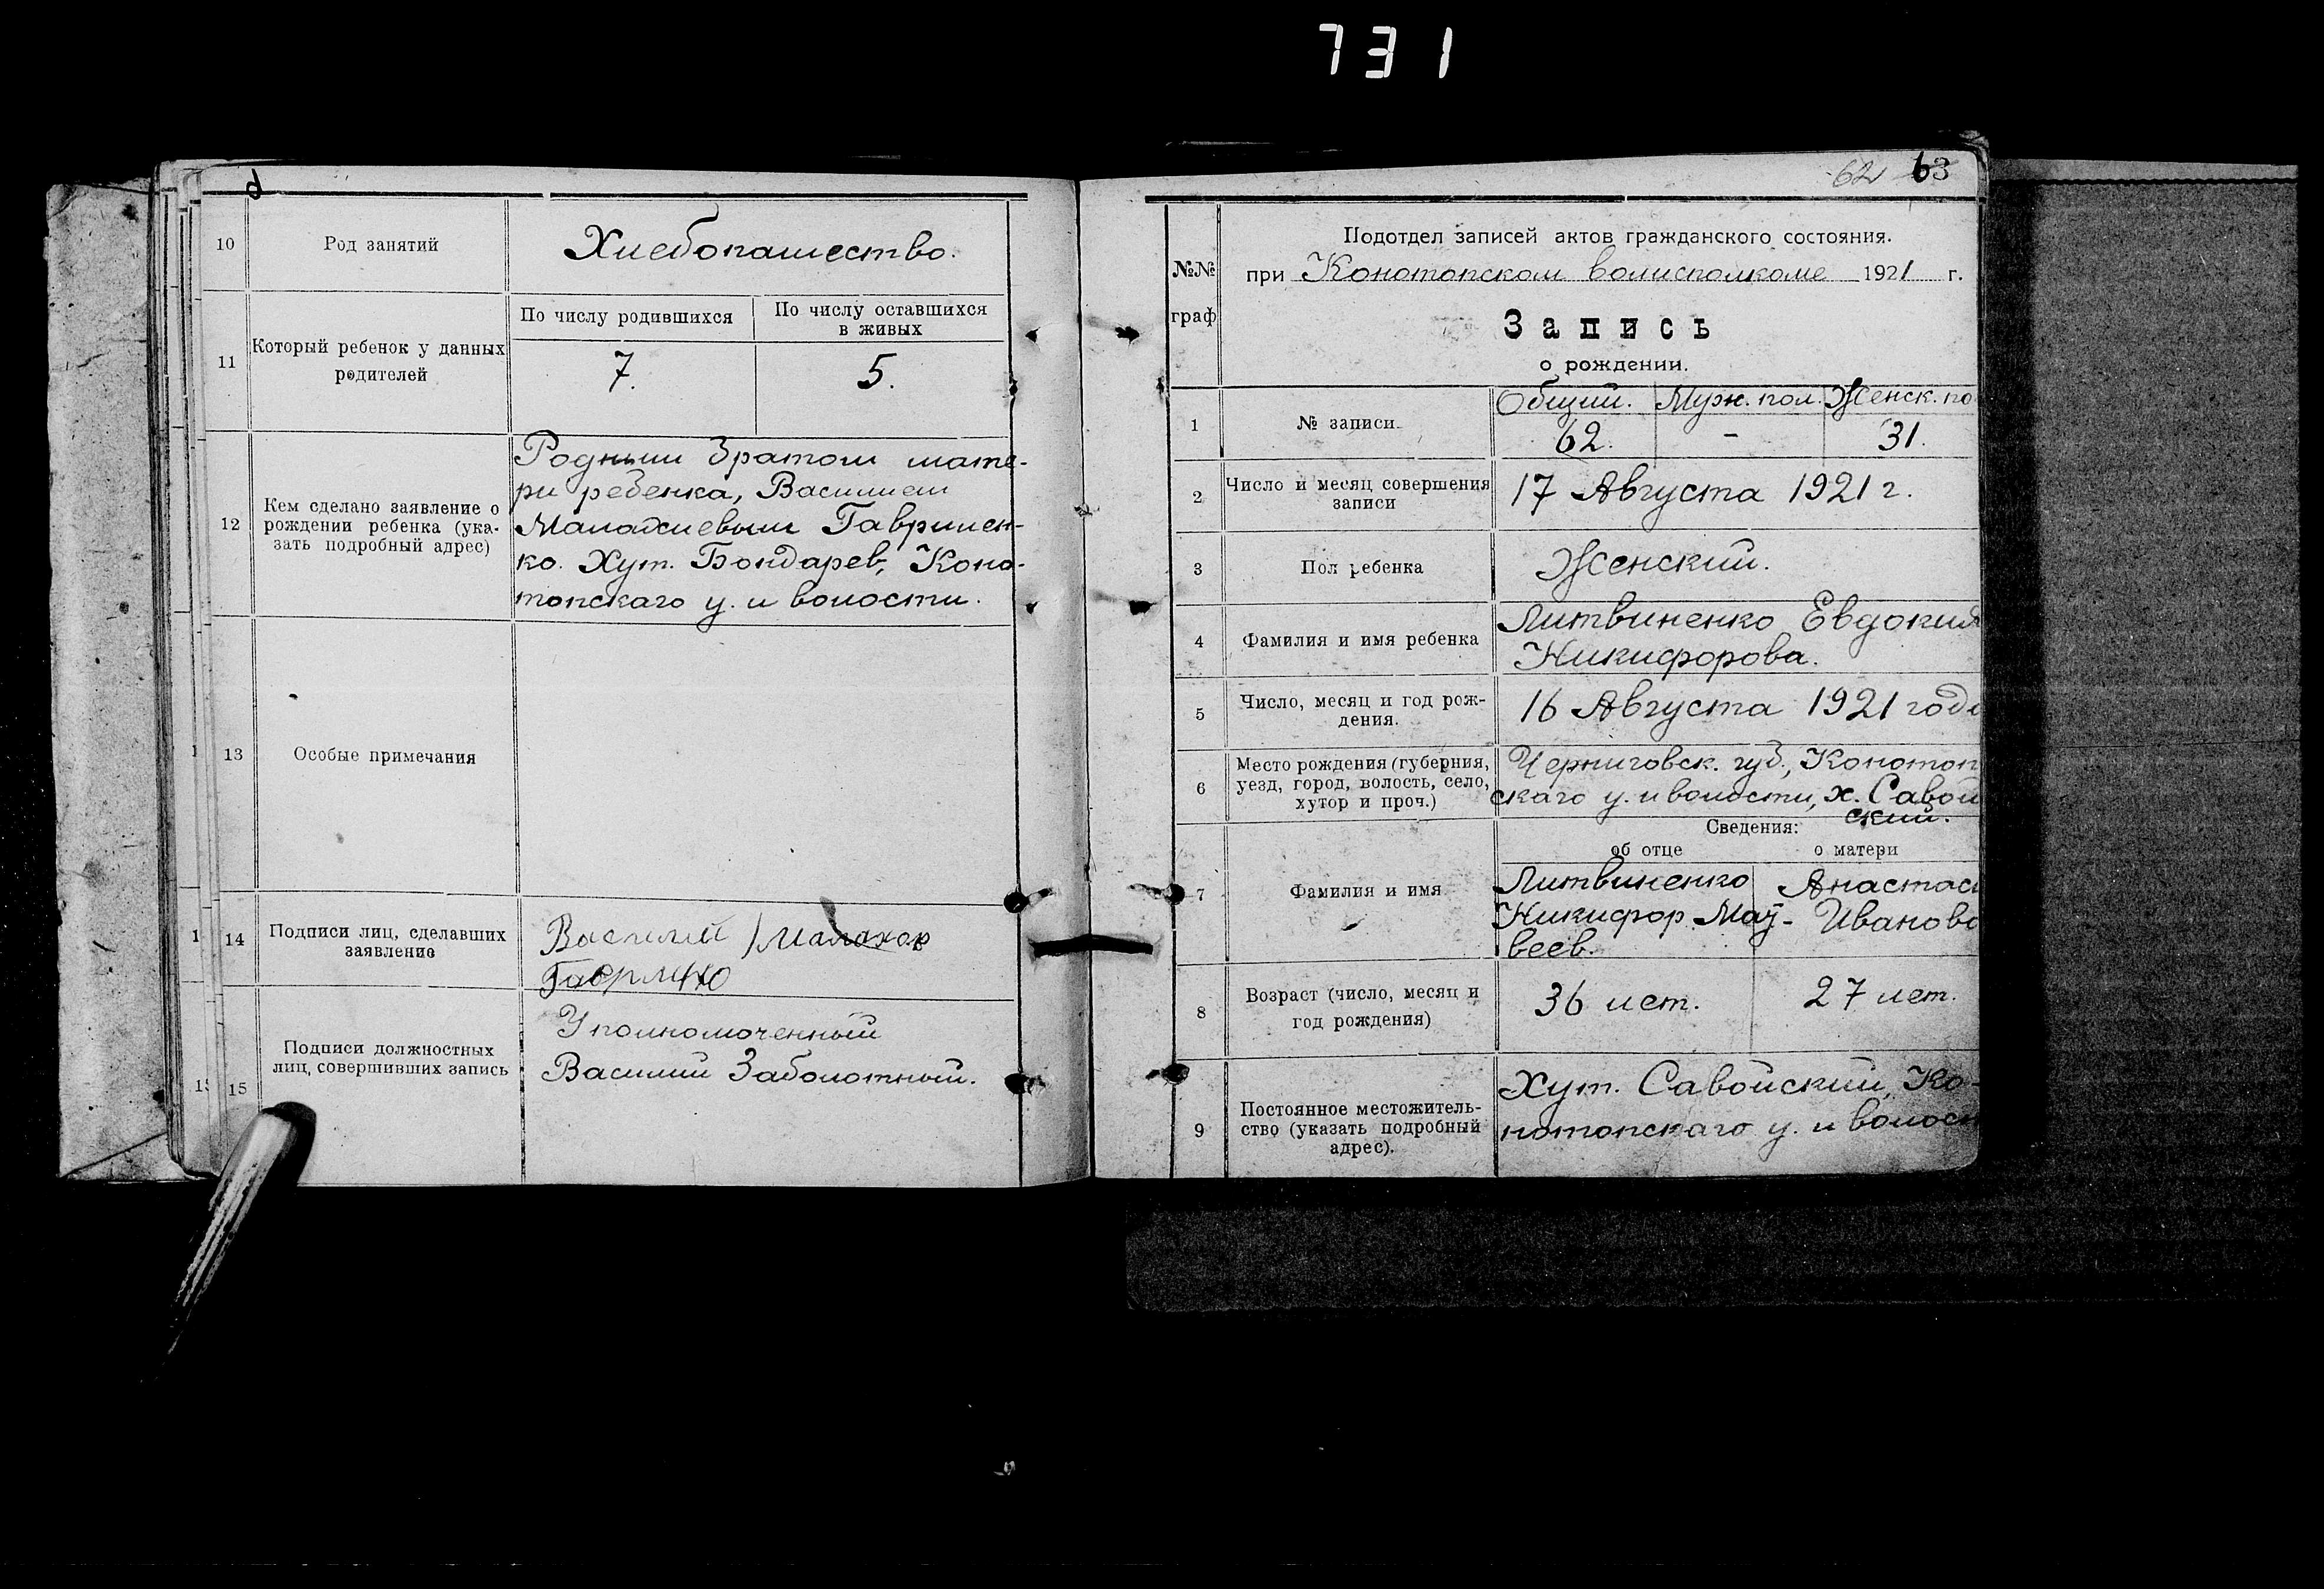 731
10
Род занятий
Хлебопашество.
11
Который ребенок у данных
родителей
По числу родившихся
По числу оставшихся
в живых
7.
5.
12
Кем сделано заявление о
рождении ребенка (ука-
зать подробный адрес)
Родным братом мате-
ри ребенка, Василием
Малахиевым Гаврилен-
ко. Хут. Бондарев, Коно-
топскаго у. и волости.
13
Особые примечания
14
Подписи лиц, сделавших
заявление
Василий
15
Подписи должностных
лиц, совершивших запись
Уполномоченный
Василий Заболотный.
62 63
№№
граф
Подотдел записей актов гражданского состояния.
при Конотопском волисполкоме 1921 г.
Запись
о рождении.
1
№ записи
Общий. Муж. пол. Женск. по
62. - 31.
2
Число и месяц совершения
записи
17 Августа 1921 г.
3
Пол ребенка
Женский.
4
Фамилия и имя ребенка
Литвиненко Евдокия
Никифорова.
5
Число, месяц и год рож-
дения.
16 Августа 1921 года
6
Место рождения (губерния,
уезд, город, волость, село,
хутор и проч.)
Черниговск. губ., Конотоп
скаго у. и волости, х. Савой
ский.
Сведения:
об отце
о матери
7
Фамилия и имя
Литвиненко
Никифор Мат-
веев.
Анастаси
Иванова
8
Возраст (число, месяц и
год рождения)
36 лет.
27 лет.
9
Постоянное местожитель-
ство (указать подробный
адрес).
Хут. Савойский, Ко-
нотопскаго у. и волос